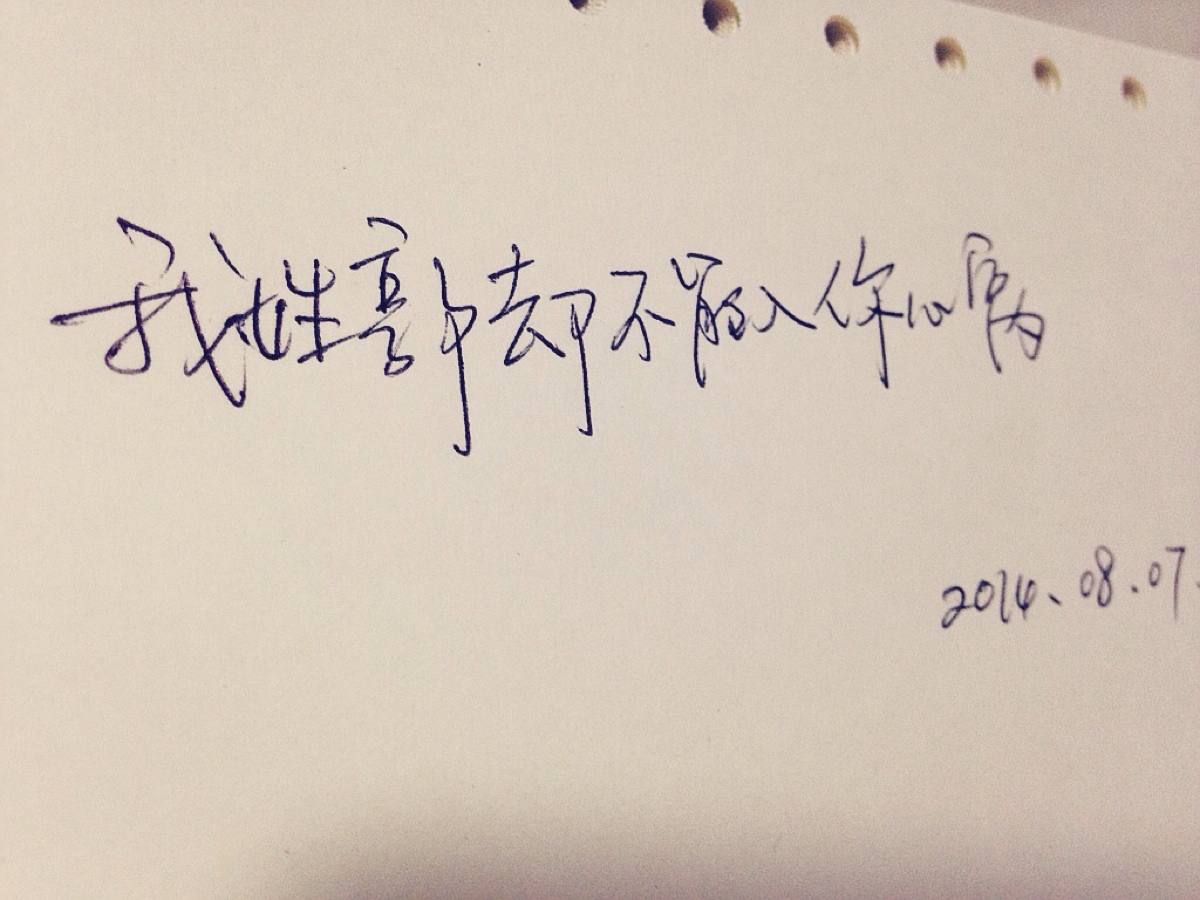 我姓郭却不能入你心房
2014、08.07.